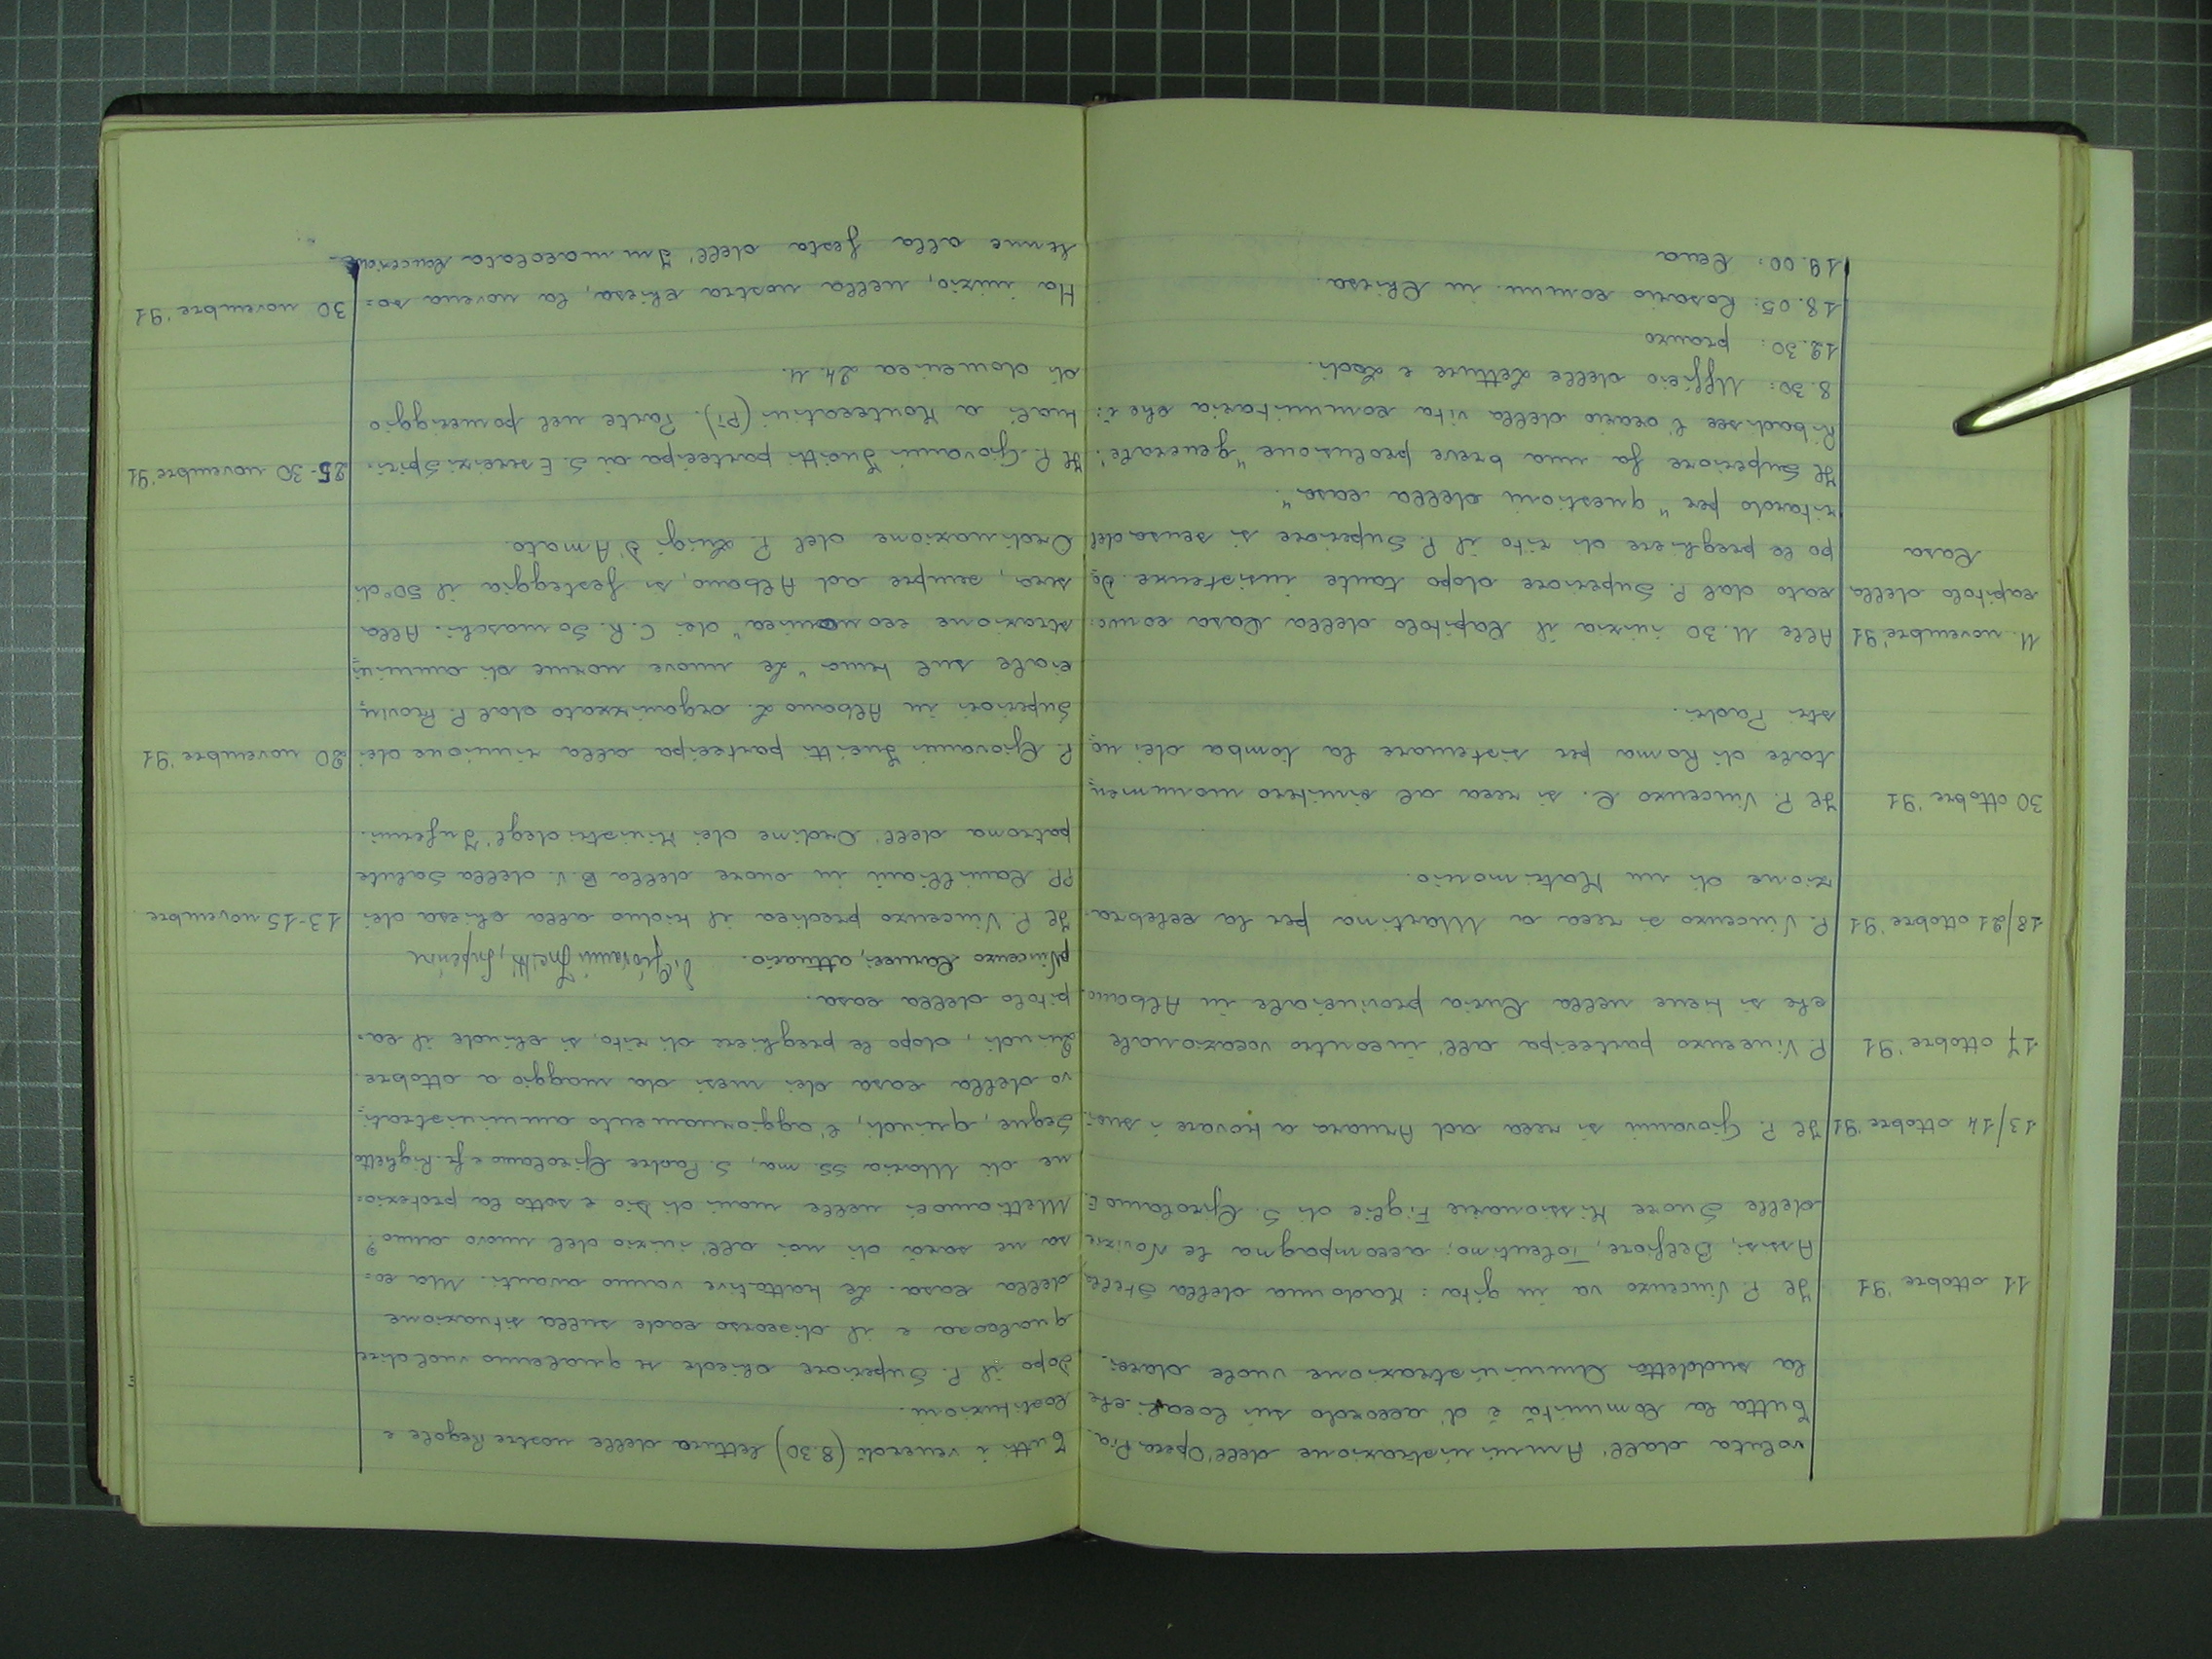 voluta dall'Amministrazione dell'Opera Pia.
Tutta la Comunità è d'accordo sui locali che
la suddetta Amministrazione vuole darci.
11 ottobre '91 Il P. Vincenzo va in gita: Madonna della Stella,
Assisi, Belfiore, Tolentino; accompagna le Novizie
delle Suore Missionarie Figlie di S. Girolamo E.
13/14 ottobre '91 Il P. Giovanni si reca ad Amara a trovare i suoi.
17 ottobre '91 P. Vincenzo partecipa all'incontro vocazionale
che si tiene nella Curia provinciale in Albano.
18/21 ottobre '91 P. Vincenzo si reca a Martina per la celebra-
zione di un Matrimonio.
30 ottobre '91 Il P. Vincenzo C. si reca al cimitero monumen=
tale di Roma per sistemare la tomba dei no=
stri Padri.
11. novembre '91 Alle 11.30 inizia il Capitolo della Casa convo=
capitolo della cato dal P. Superiore dopo tante insistenze. Do=
Casa po le preghiere di rito il P. Superiore si scusa del
ritardo per "questioni della casa".
Il Superiore fa una breve prolusione "generale".
Ribadisce l'orario della vita comunitaria che è:
8.30: Ufficio delle Letture e Lodi.
12.30: pranzo
18.05: Rosario comun. in Chiesa.
19.00: Cena
Tutti i venerdì (8.30) lettura delle nostre Regole e
Costituzioni.
Dopo il P. Superiore chiede se qualcuno vuol dire
qualcosa e il discorso cade sulla situazione
della casa. Le trattative vanno avanti. Ma co=
sa ne sarà di noi all'inizio del nuovo anno?
Mettiamoci nelle mani di Dio e sotto la protezio=
ne di Maria SS.ma, S. Padre Girolamo e fr. Righetto
Segue, quindi, l'aggiornamento amministrati=
vo della casa dei mesi da maggio a ottobre.
Quindi, dopo le preghiere di rito, si chiude il ca=
pitolo della casa.
p Vincenzo Capucci, attuario. P. Giovanni Gueitti, Superiore
Il P. Vincenzo predica il triduo alla chiesa dei 13-15 novembre
PP. Camilliani in onore della B.V. della Salute
patrona dell'Ordine dei Ministri degl'Infermi.
P. Giovanni Gueitti partecipa alla riunione dei 20 novembre '91
Superiori in Albano L. organizzato dal P. Provin=
ciale sul tema "Le nuove norme di ammini=
strazione economica" dei C.R. Somaschi. Alla
sera, sempre ad Albano, si festeggia il 50° di
Ordinazione del P. Luigi D'Amato.
Il P. Giovanni Gueitti partecipa ai S. Esercizi Spiri= 25-30 novembre '91
tuali a Montecatini (PT). Parte nel pomeriggio
di domenica 24.11.
Ha inizio, nella nostra chiesa, la novena so= 30 novembre '91
lenne alla festa dell'Immacolata Concezione.